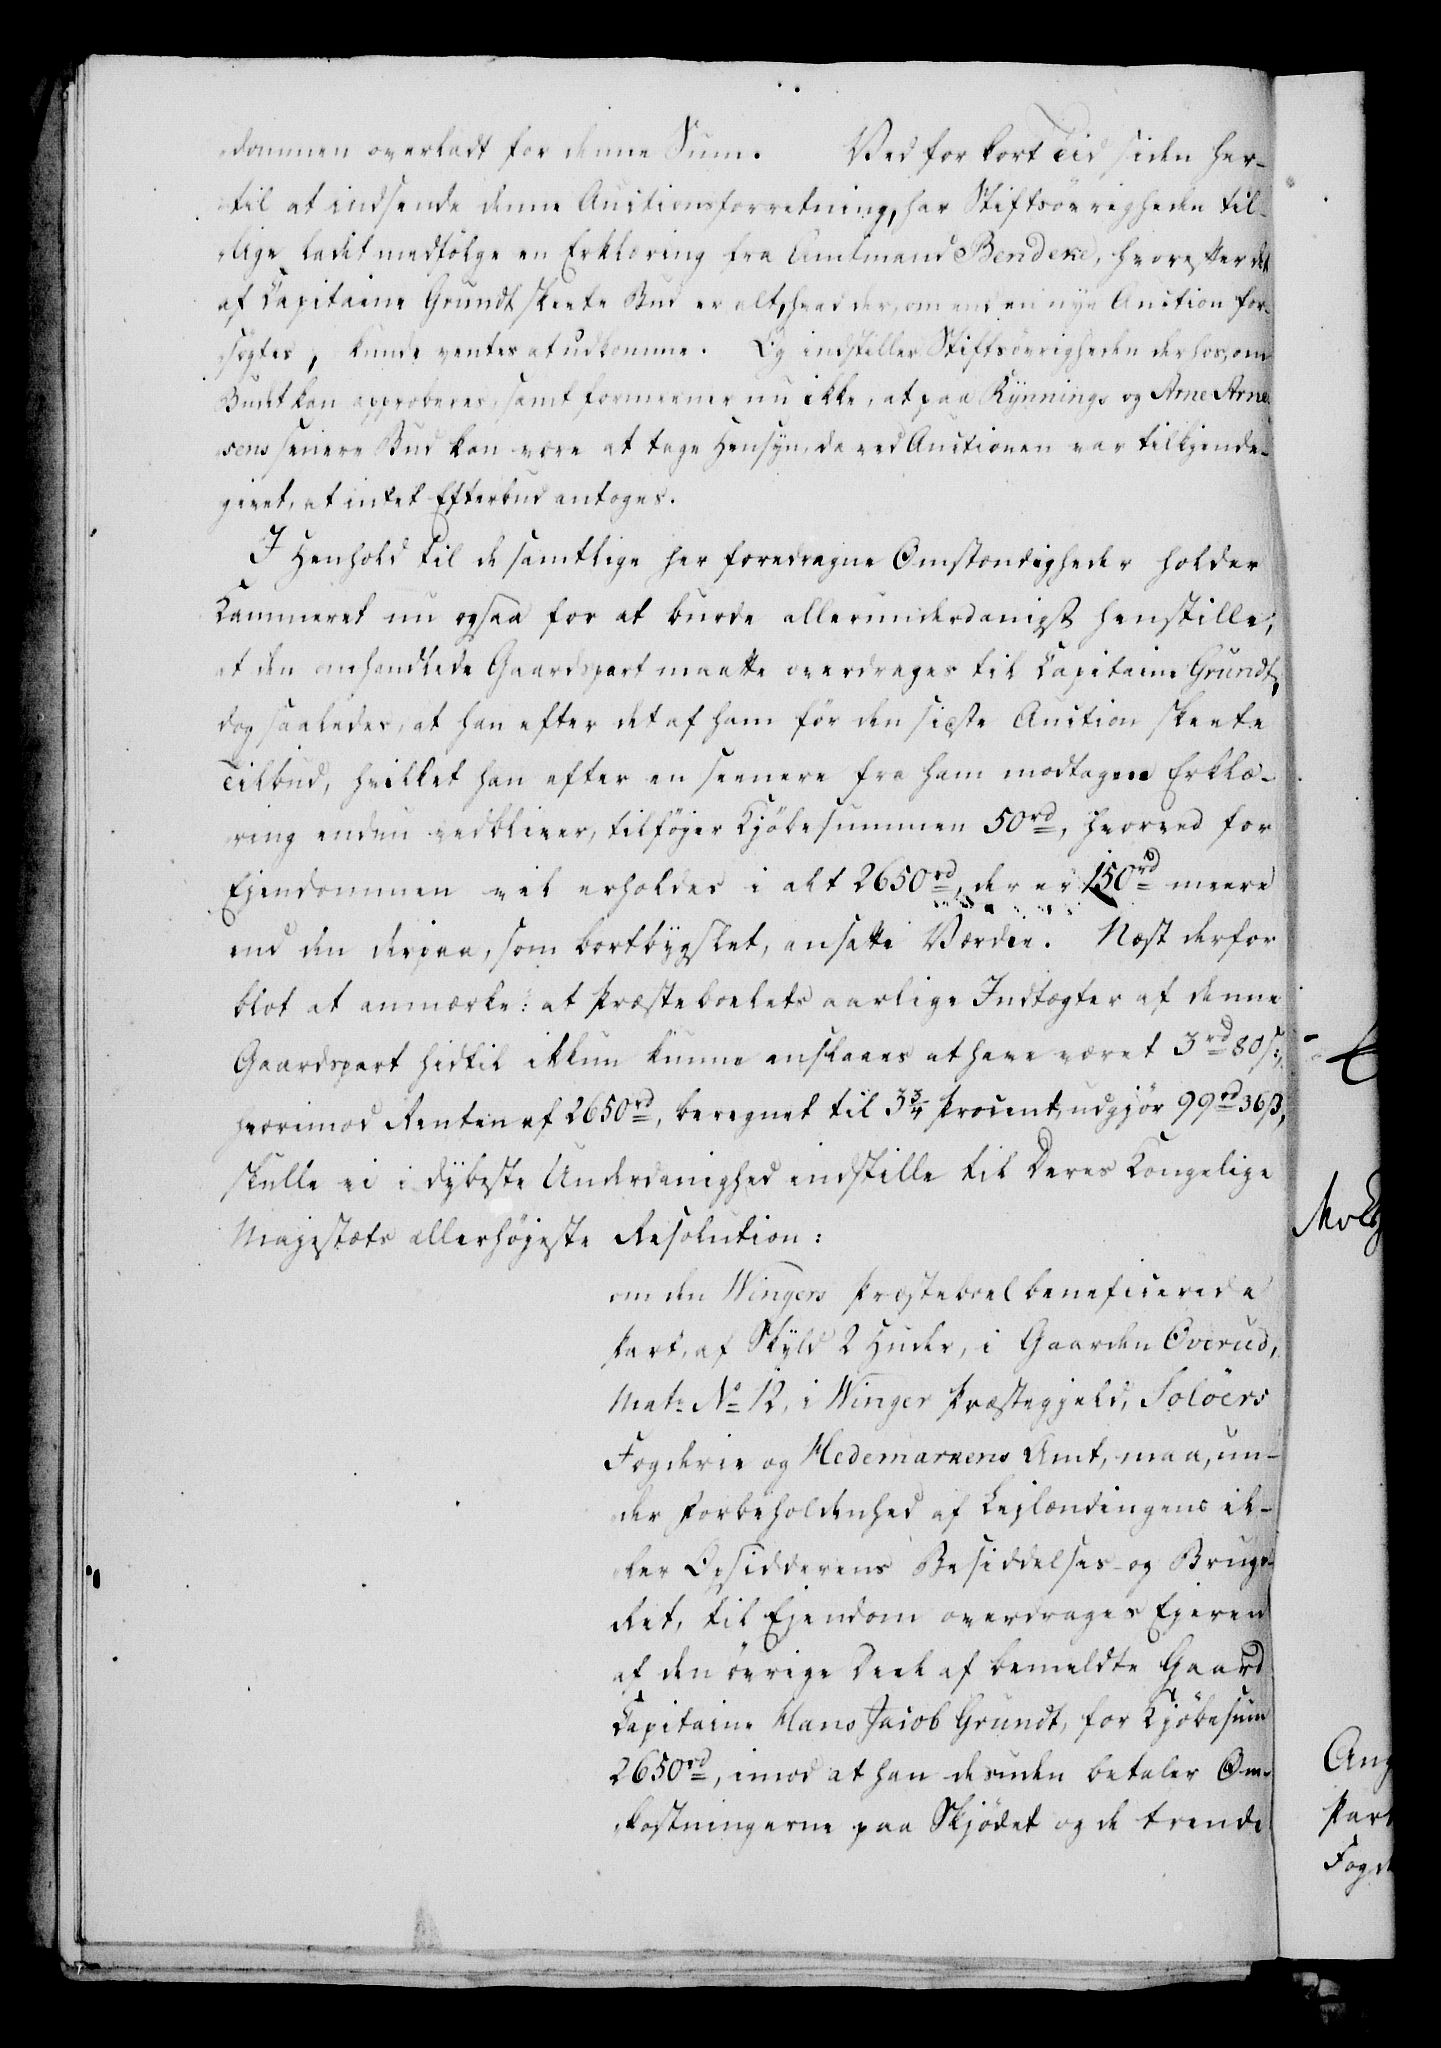 dommen overladt for denne Sum. Ved for kort Tid siden her-
til at indsende denne Auctionsforretning, har Stiftsövrigheden til-
lige ladet medfölge en Erklæring fra Amtmand Bendeke, hvorefter det
af Capitaine Grundt skeete Bud er alt, hvad der, om end en nye Auction for-
sögtes, kunde ventes at udkomme. Og indstiller Stiftsövrigheden derhos, om
Budet kan approberes, samt formeener nu ikke, at paa Kynnings og Arne Arne-
sens senere Bud kan være at tage Hensyn, da ved Auctionen var tilkjende-
givet, at intet Efterbud antoges.
I Henhold til de samtlige her foredragne Omstændigheder holder
Kammeret nu ogsaa for at burde allerunderdanigst henstille,
at den omhandlede Gaardspart maatte overdrages til Capitaine Grundt,
dog saaledes, at han efter det af ham för den sidste Auction skeete
Tilbud, hvilket han efter en seenere fra ham modtagen Erklæ-
ring endnu vedbliver, tilföjer Kjöbesummen 50 rd, hvorved for
Ejendommen vil erholdes i alt 2650 rd, der er 150 rd meere
end den derpaa, som bortbygslet, ansatte Værdie. Næst derfor
blot at anmærke: at Præsteboelets aarlige Indtægter af denne
Gaardspart hidtil ikkun kunne anslaaes at have været 3 rd 80 s,
hvorimod Renten af 2650 rd, beregnet til 3¾ Procent, udgjör 99 rd 36 ß,
skulle vi i dybeste Underdanighed indstille til Deres Kongelige
Majestæts allerhöjeste Resolution:
om den Wingers Præsteboel beneficerede
Part, af Skyld 2 Huder, i Gaarden Overud,
Matr. No 12, i Winger Præstegjeld, Solöers
Fogderie og Hedemarkens Amt, maa, un-
der Forbeholdenhed af Lejlændingens el-
ler Opsidderens Besiddelses- og Brugs-
Ret, til Ejendom overdrages Ejeren
af den övrige Deel af bemeldte Gaard
Capitaine Hans Jacob Grundt, for Kjöbesum
2650 rd, imod at han desuden betaler Om-
kostningerne paa Skjödet og de trende
Part
Fogd